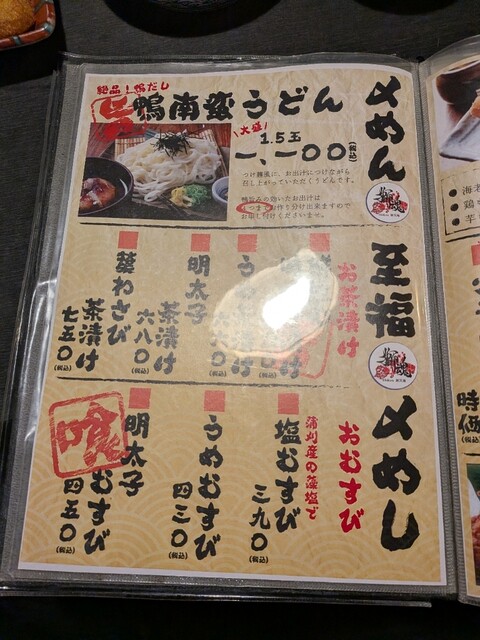 〆めん
絶品！鴨だし
鴨南蛮うどん
大盛
1.5玉
一、一〇〇(税込)
つけ麺風に、お出汁につけながら
召し上がっていただくうどんです。
鴨旨みの効いたお出汁は
いつまでもお作り分け出来ますので
お申し付けくださいませ。
至福
お茶漬け
明太子
茶漬け
六八〇(税込)
葵わさび
茶漬け
七五〇(税込)
〆めし
おむすび
蒲刈産の藻塩で
塩むすび
三九〇(税込)
うめむすび
四三〇(税込)
明太子
むすび
四五〇(税込)
喰
時価
(税込)